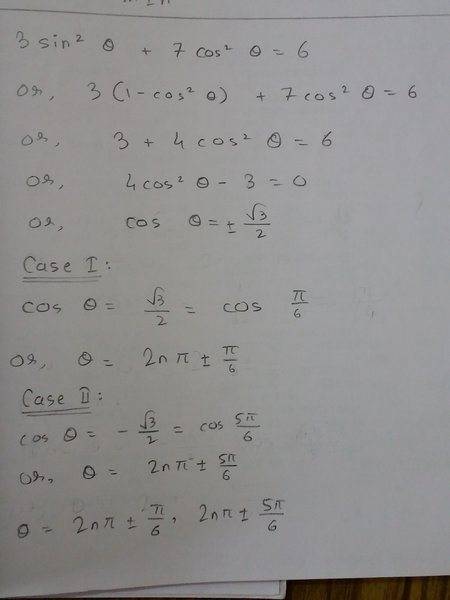 3 sin² θ + 7 cos² θ = 6
or, 3 (1 - cos² θ) + 7 cos² θ = 6
or, 3 + 4 cos² θ = 6
or, 4 cos² θ - 3 = 0
or, cos θ = ± √3/2
Case I:
cos θ = √3/2 = cos π/6
or, θ = 2nπ ± π/6
Case II:
cos θ = - √3/2 = cos 5π/6
or, θ = 2nπ ± 5π/6
θ = 2nπ ± π/6, 2nπ ± 5π/6